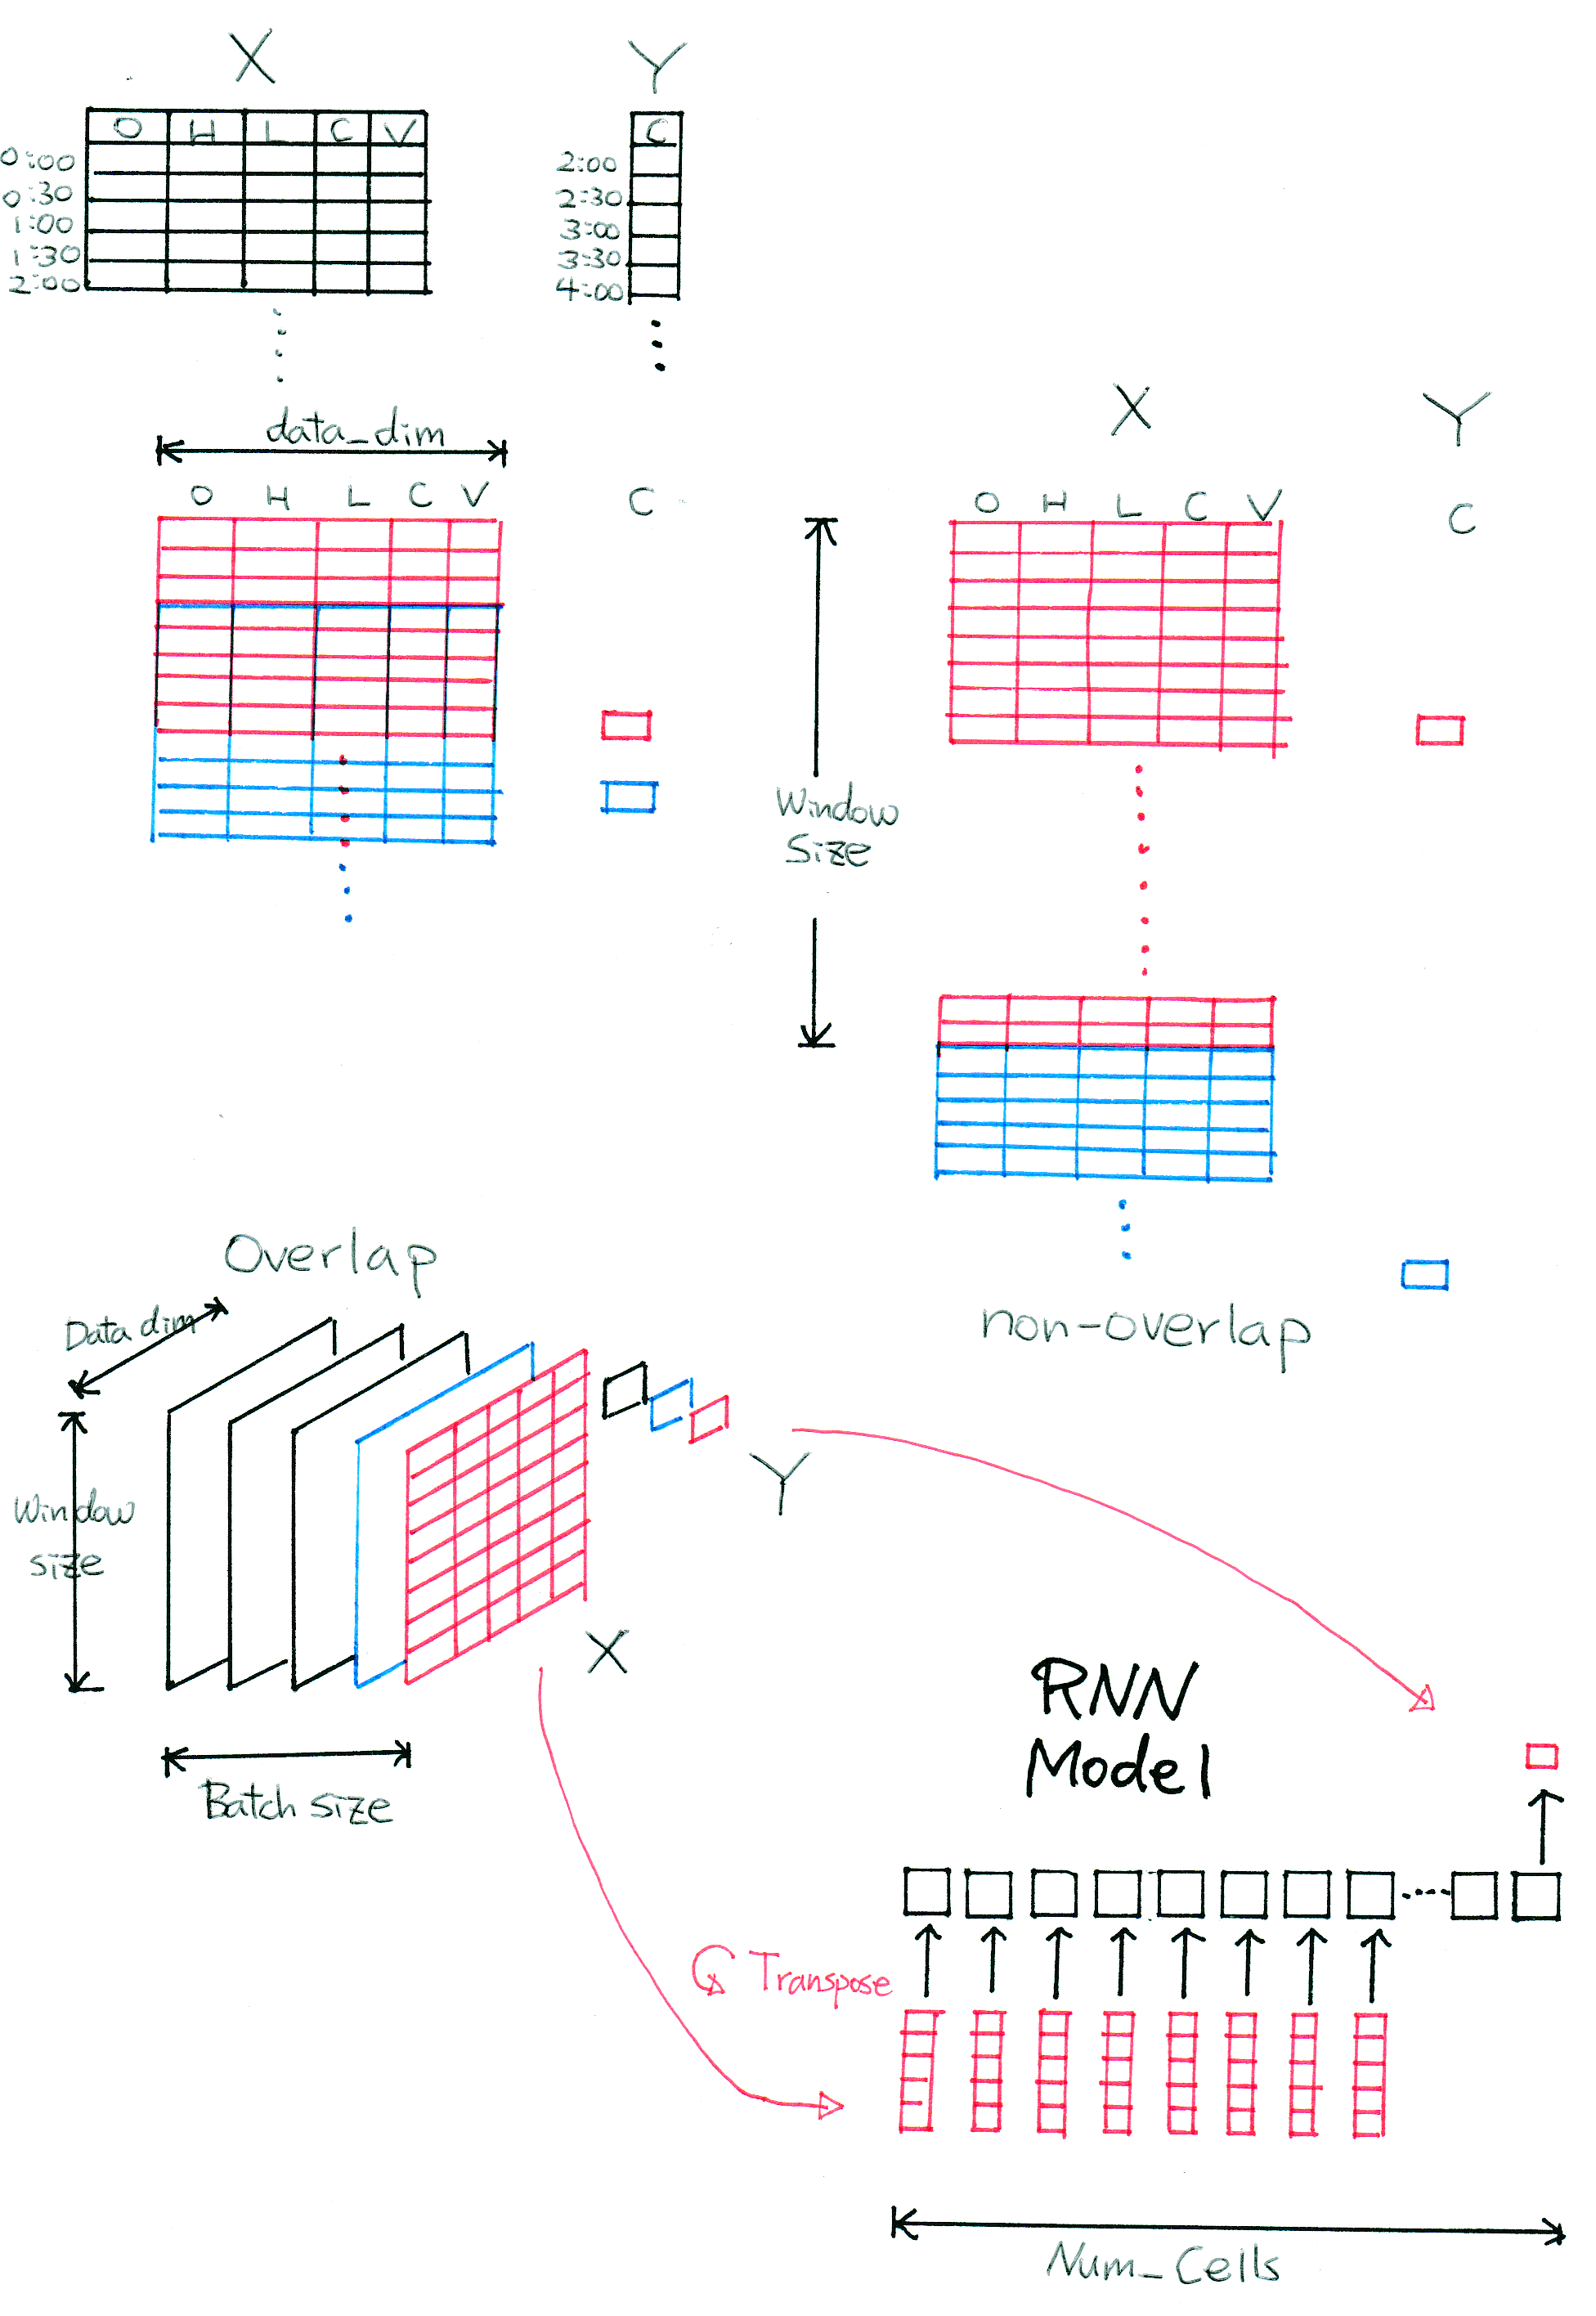 X
Y
O H L C V
C
0:00
0:30
1:00
1:30
2:00
2:00
2:30
3:00
3:30
4:00
data_dim
O H L C V
C
X
Y
O H L C V
C
Window
Size
Overlap
non-overlap
Data dim
Window
size
Y
X
Batch size
RNN
Model
Transpose
Num_Cells